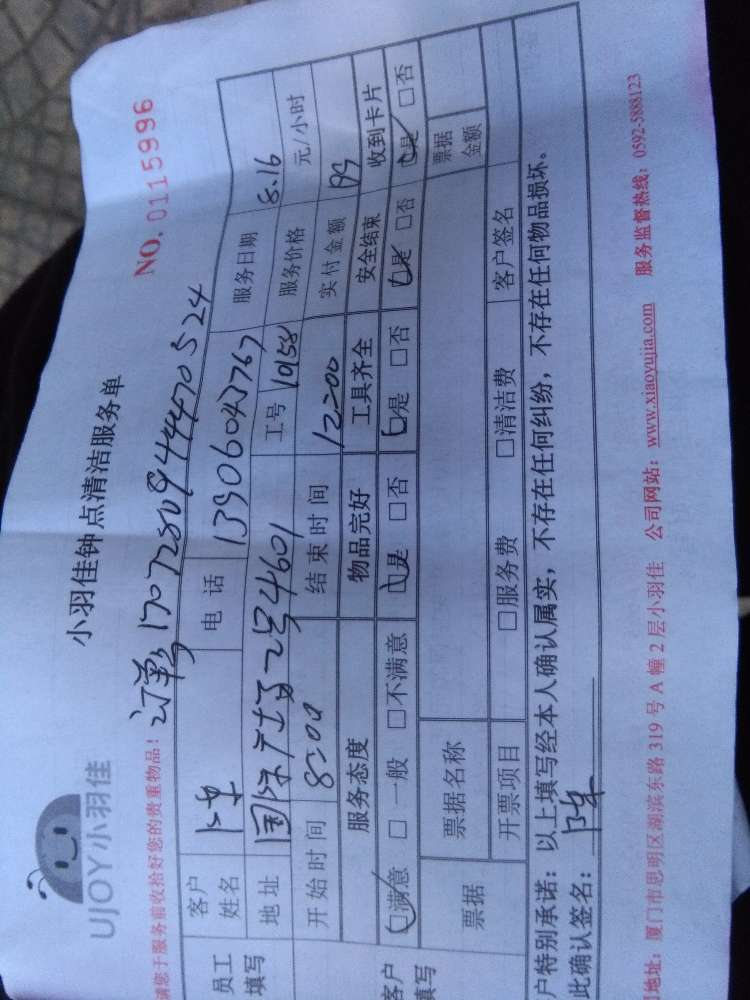 UJOY小羽佳
小羽佳钟点清洁服务单
NO. 0115996
请您于服务前收拾好您的贵重物品!
170728094447 0524
员工填写
客户姓名 陈 电话 服务日期 8.16
地址 2号4601 工号 10158 服务价格 元/小时
开始时间 8:00 结束时间 12:00 实付金额
客户填写
服务态度 物品完好 工具齐全 安全结束 收到卡片
☑满意 □一般 □不满意 ☑是 □否 ☑是 □否 ☑是 □否 ☑是 □否
票据 票据名称 票据金额
开票项目 □服务费 □清洁费 客户签名
户特别承诺: 以上填写经本人确认属实,不存在任何纠纷,不存在任何物品损坏。
此确认签名: 陈
地址: 厦门市思明区湖滨东路 319 号 A 幢 2 层小羽佳 公司网站: www.xiaoyujia.com 服务监督热线: 0592-5888123